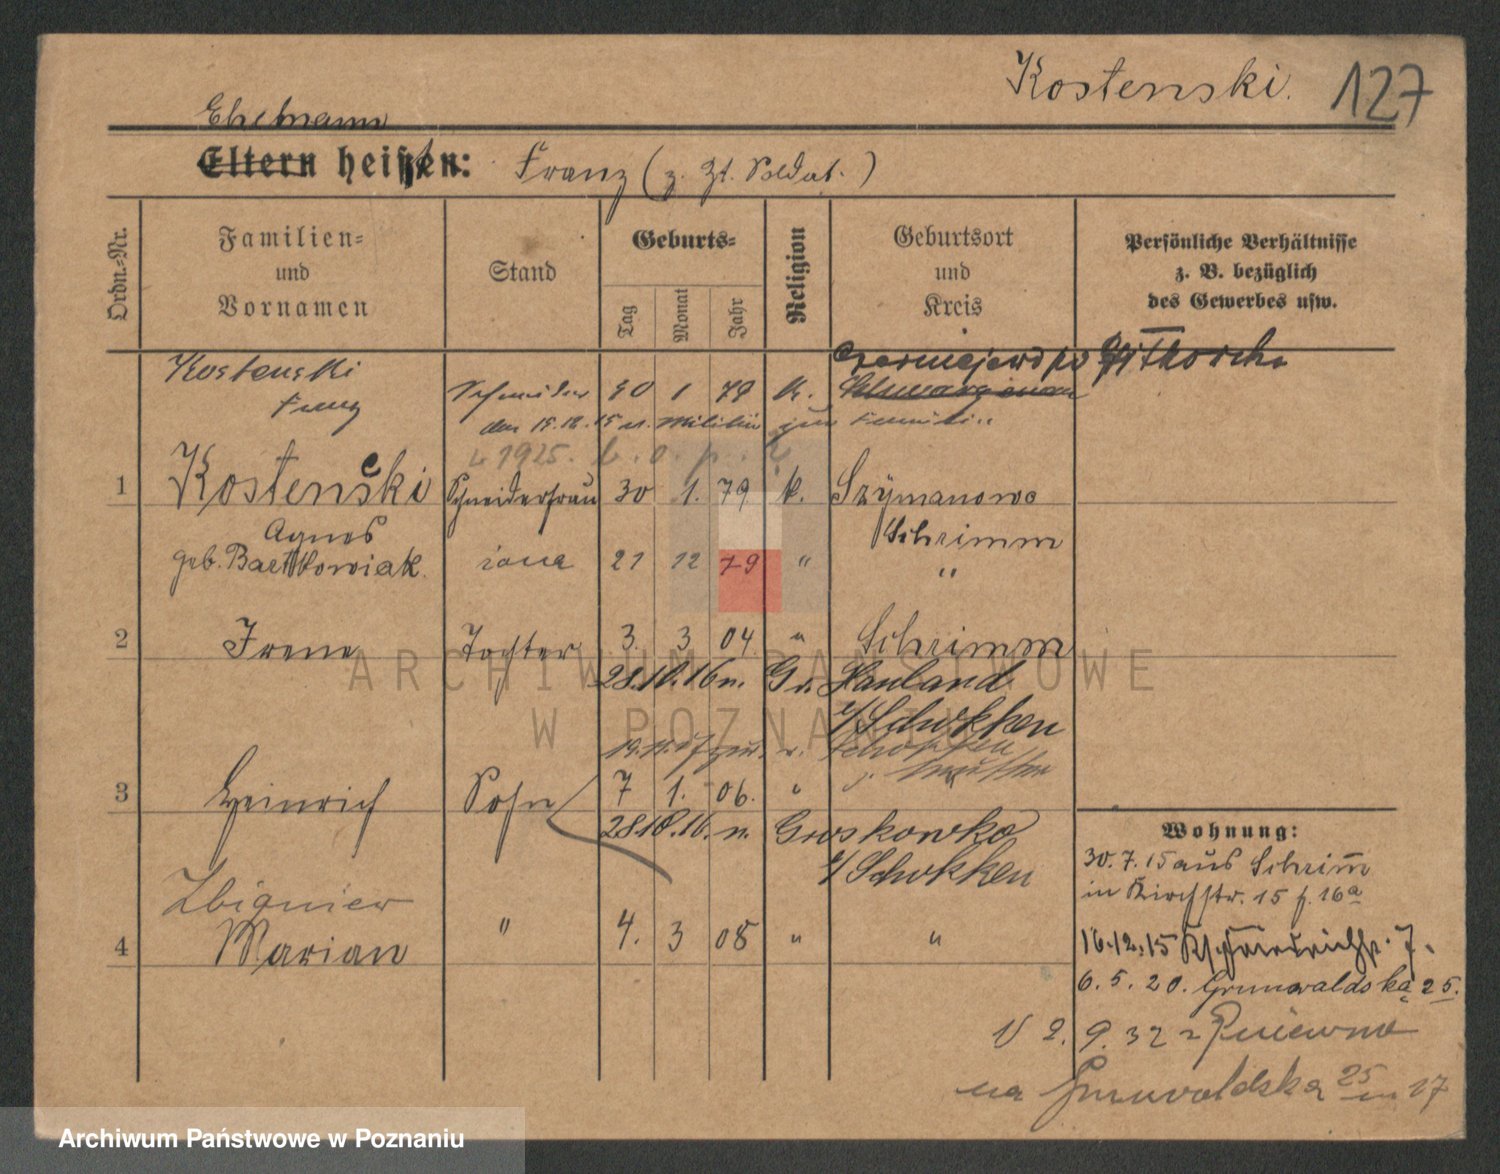 Kostenski. 127
Ehemann
Eltern heißen: Franz (z. Zt. Soldat.)
Ordn.-Nr.
Familien- und Vornamen
Stand
Geburts-
Tag Monat Jahr
Religion
Geburtsort und Kreis
Persönliche Verhältnisse
z. B. bezüglich
des Gewerbes usw.
Kostenski
Franz
Schneider 1 79 k.
den 15.12.15 v. Militär zur Familie
1925.
1 Kostenski Schneiderfrau 30 1. 79 k. Szymanowo
Agnes Schrimm
geb. Bartkowiak 21 12 79 " "
2 Irene Tochter 3. 3 04 " Schrimm
28.10.16 n. Gr. Hauland
b/Schokken
Schokken
3 Heinrich Sohn 7 1. 06. "
28.10.16. n.
b/Schokken
Zbigniew
4 Marian " 4. 3 08 " "
Wohnung:
30.7.15 aus Schrimm
in Kirchstr. 15 16a
16.12.15
6.5.20. Grunwaldska 25.
2.9.32 z Pniewna
na Grunwaldska 25 m 17
ARCHIWUM PAŃSTWOWE
W POZNANIU
Archiwum Państwowe w Poznaniu